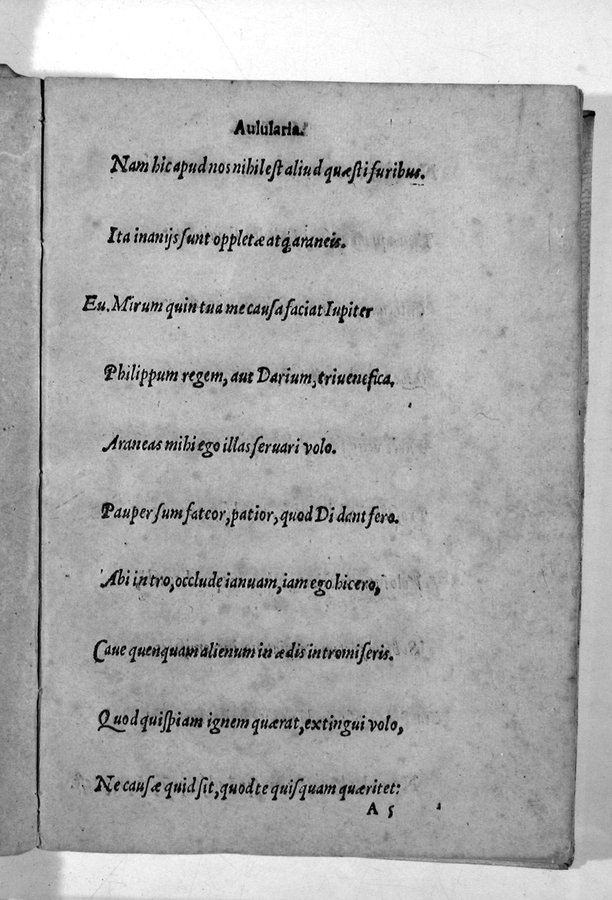 Aulularia.
Nam hic apud nos nihil est aliud quæsti furibus.
Ita inanijs sunt oppletæ atq; araneis.
Eu. Mirum quin tua me causa faciat Iupiter
Philippum regem, aut Darium, trivenefica.
Araneas mihi ego illas servari volo.
Pauper sum fateor, patior, quod Di dant fero.
Abi intro, occlude ianuam, iam ego hic ero,
Caue quenquam alienum in ædis intromiseris.
Quod quispiam ignem quærat, extingui volo,
Ne causæ quid sit, quod te quisquam quæritet:
A 5